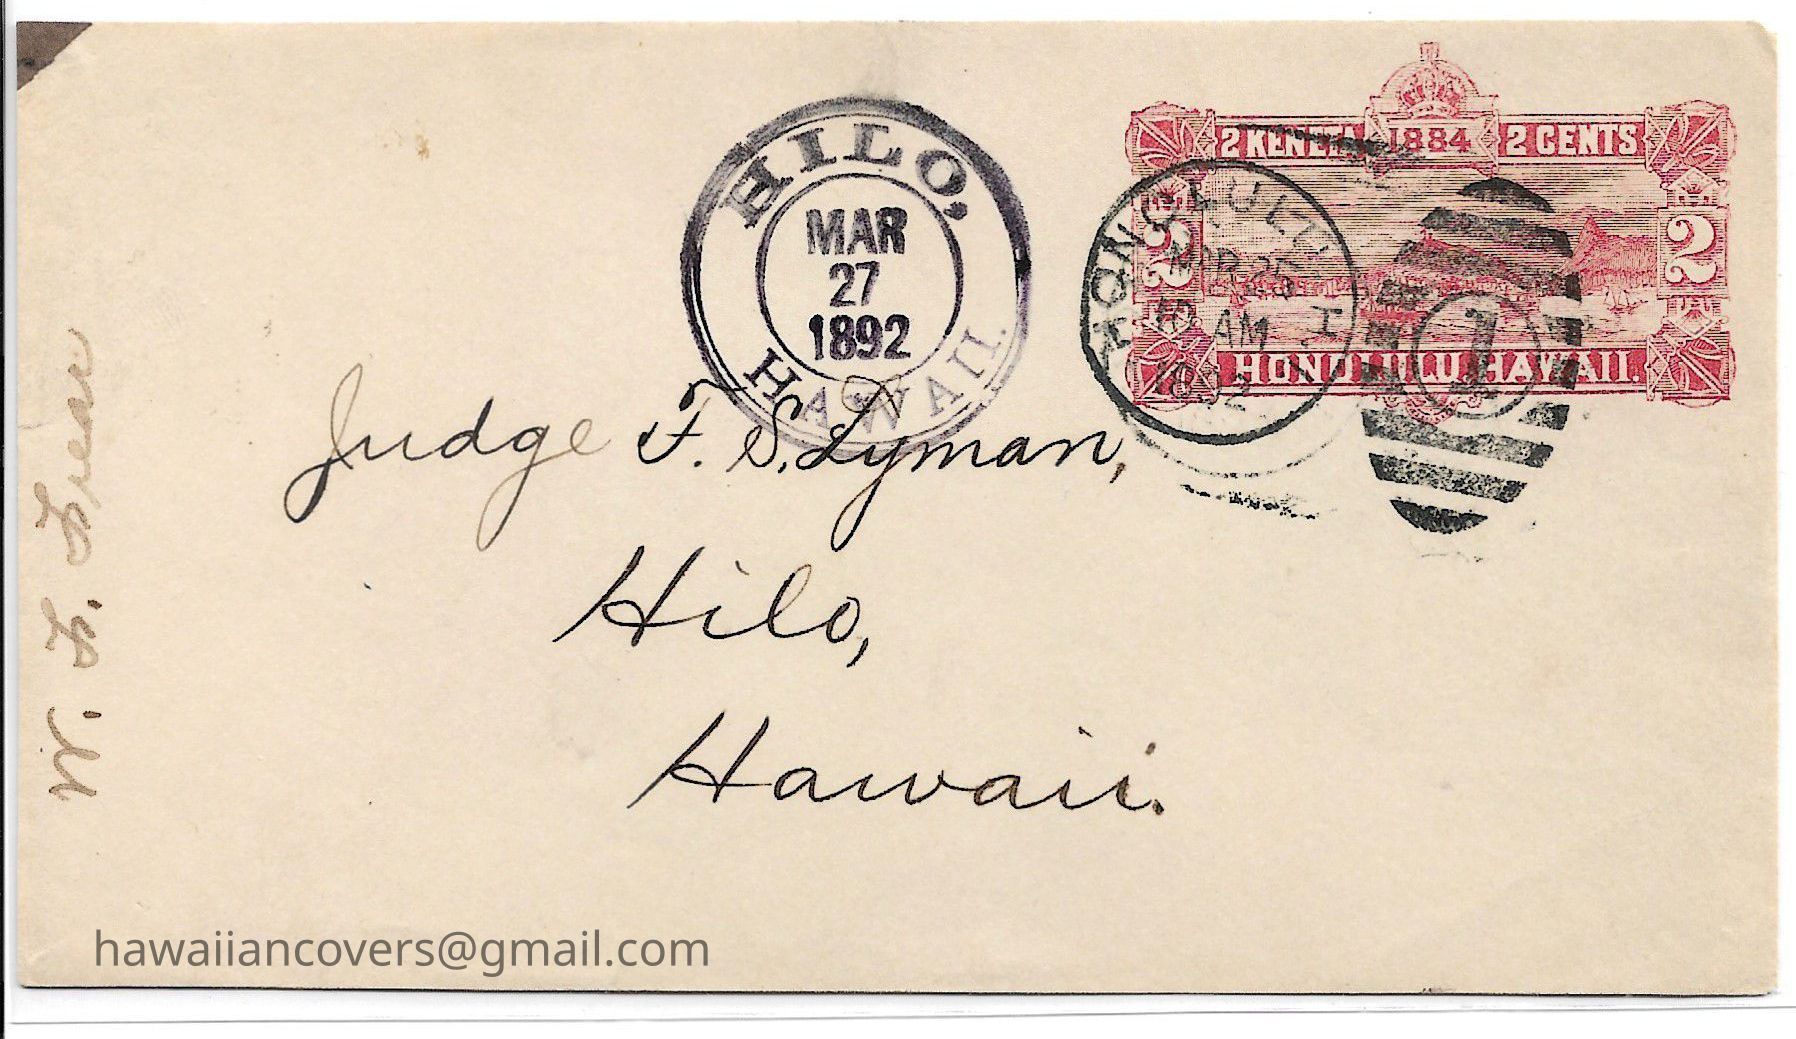 HILO,
MAR
27
1892
HAWAII.
1884
2 KENETA 2 CENTS
2 2
HONOLULU H I
MAR 25
AM
1892
1
HONOLULU, HAWAII.
Judge F. S. Lyman,
Hilo,
Hawaii.
W. F. Frear
hawaiiancovers@gmail.com